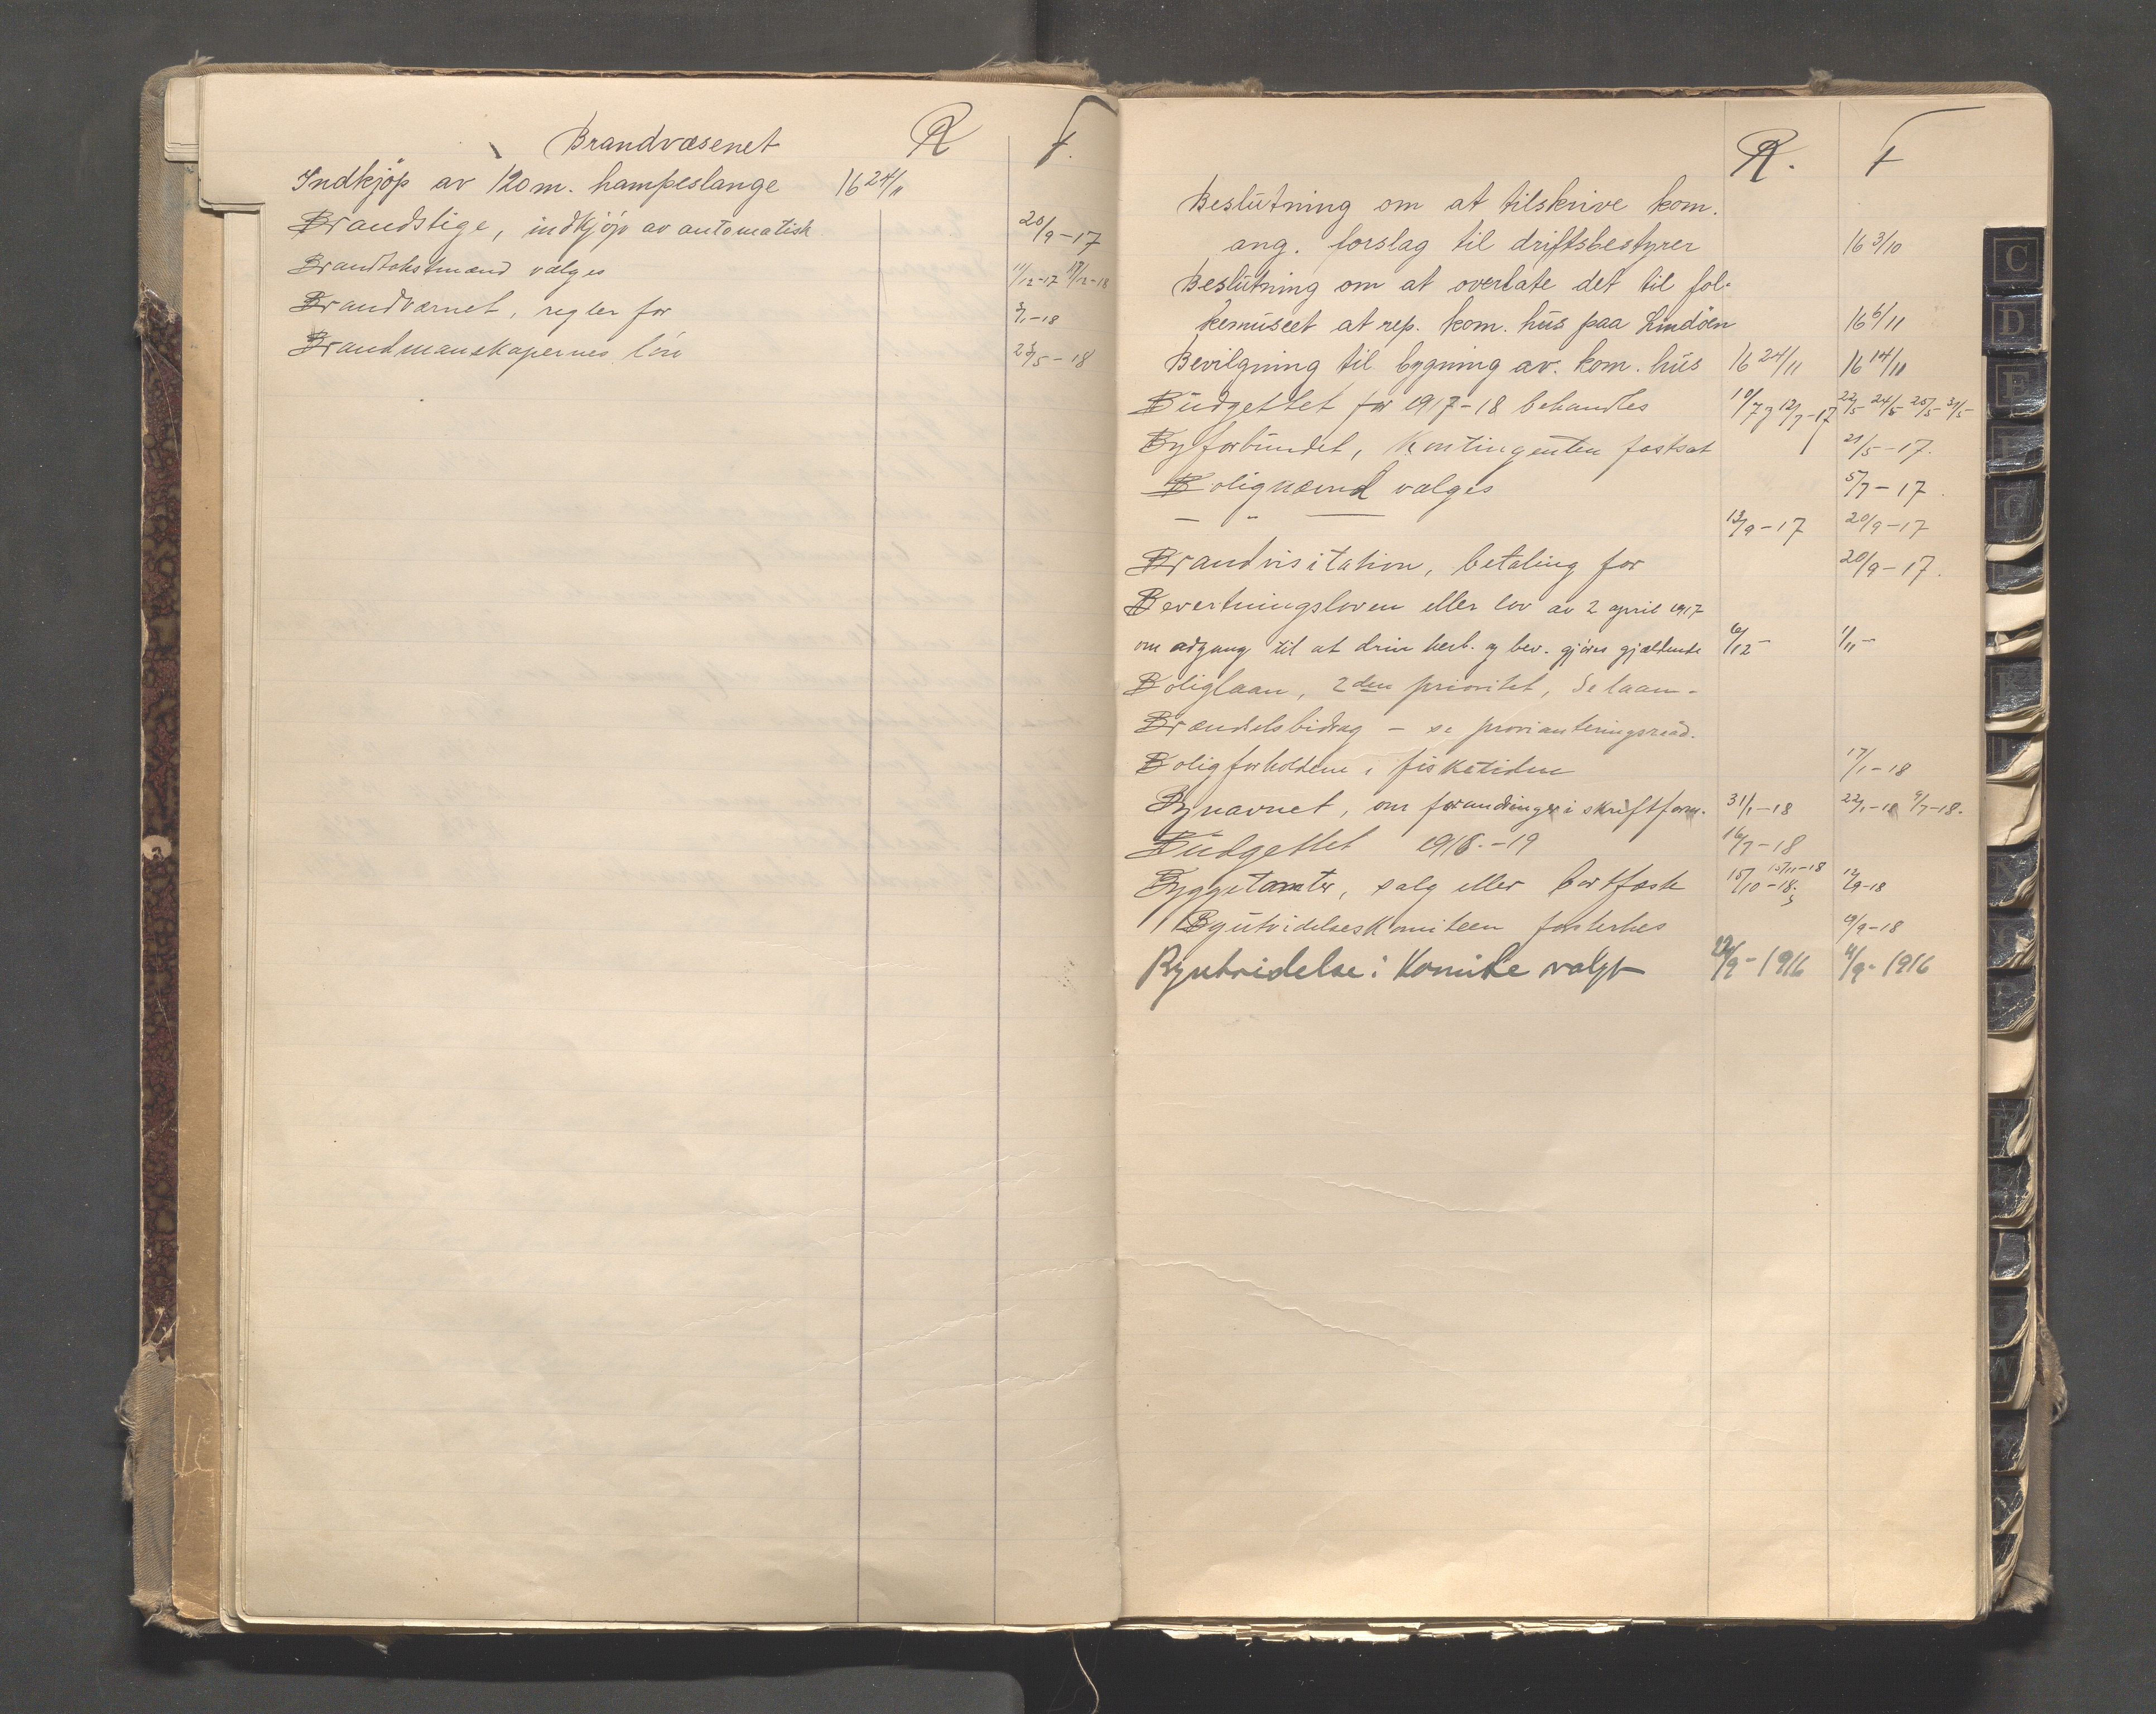 Brandvæsenet R F.
Indkjöp av 120 m. hampeslange 16 24/11
Brandstige, indkjöp av automatisk 20/9-17
Brandtakstmænd vælges 11/12-17 17/12-18
Brandværnet, regler for 3/1-18
Brandmanskapernes lön 23/5-18
R. F
Beslutning om at tilskrive kom.
ang. forslag til driftsbestyrer 16 3/10
Beslutning om at overlate det til fol-
kemuseet at rep. kom. hus paa Lindöen 16 6/11
Bevilgning til bygning av. kom. hus 16 24/11 16 14/11
Budgettet for 1917-18 behandles 10/7 og 12/7-17 22/5- 24/5 25/5- 31/5-
Byforbundet, Kontingenten fastsat 21/5-17.
Bolignævnd vælges 5/7-17.
— " — 13/9-17 20/9-17
Brandvisitation, betaling for 20/9-17.
Bevertningsloven eller lov av 2 april 1917
om adgang til at drive herb. og bev. gjöres gjældende 6/12- 1/11-
Boliglaan, 2den prioritet, Se laan-
Brændselsbidrag - se provianteringsraad.
Boligforholdene i fisketiden 17/1-18
Bynavnet, om forandringer i skriftform. 31/1-18 22/1-18 9/7-18.
Budgettet 1918.-19 16/7-18
Byggetomter, salg eller bortfæste 15/10-18. 15/11-18 12/9-18
Byutvidelseskomiteen 9/9-18
Byutvidelse: Komite valgt /9-1916 4/9-1916
C
D
E
F
G
K
N
P
W